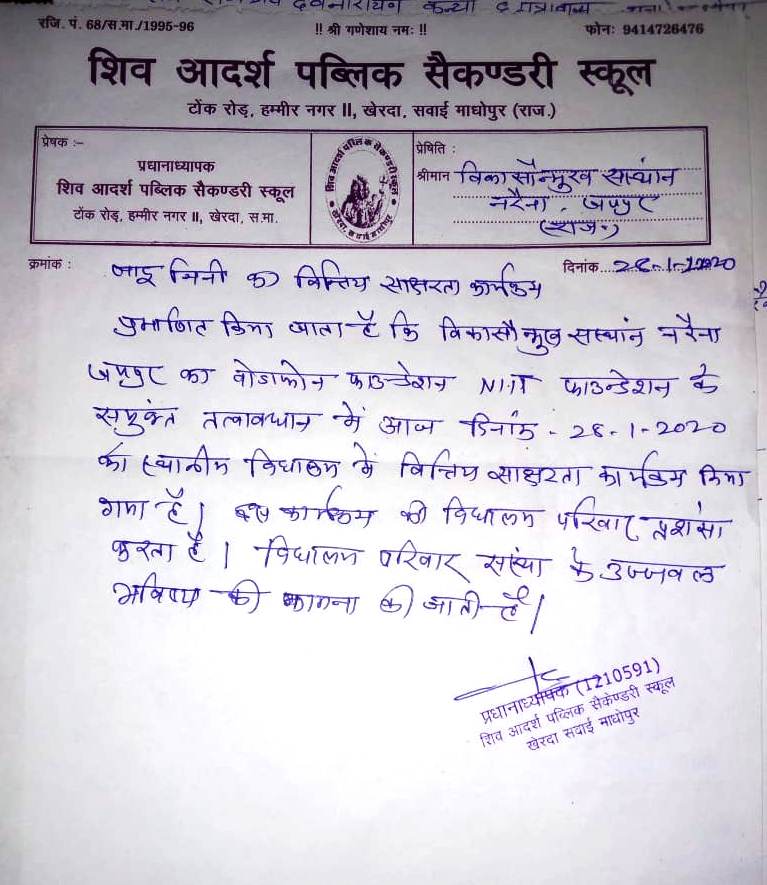 देवनारायण कन्या
रजि. पं. 68/स.मा./1995-96 !! श्री गणेशाय नमः !! फोनः 9414726476
शिव आदर्श पब्लिक सैकण्डरी स्कूल
टोंक रोड़, हम्मीर नगर II, खेरदा, सवाई माधोपुर (राज.)
प्रेषक :–
प्रधानाध्यापक
शिव आदर्श पब्लिक सैकण्डरी स्कूल
टोंक रोड़, हम्मीर नगर II, खेरदा, स.मा.
शिव आदर्श पब्लिक सैकण्डरी स्कूल
खेरदा, सवाई माधोपुर
प्रेषिति :
श्रीमान विकासौन्मुख सास्थान
नरैना, जयपुर
(राज.)
क्रमांक : दिनांक....28-1-2020
जादू गिनी का वित्तिय साक्षरता कार्यक्रम
प्रमाणित किया जाता है कि विकासौन्मुख सस्थांन नरैना
जयपुर का वोडाफोन फाउन्डेशन NIIT फाउन्डेशन के
सयुक्त तत्वावधान में आज दिनांक - 28-1-2020
को स्थानीय विधालय में वित्तिय साक्षरता कार्यक्रम किया
गया है। इस कार्यक्रम की विधालय परिवार प्रशंसा
करता है। विधालय परिवार संस्था के उज्जवल
भविष्य की कामना की जाती है।
प्रधानाध्यापक (1210591)
शिव आदर्श पब्लिक सैकेण्डरी स्कूल
खेरदा सवाई माधोपुर